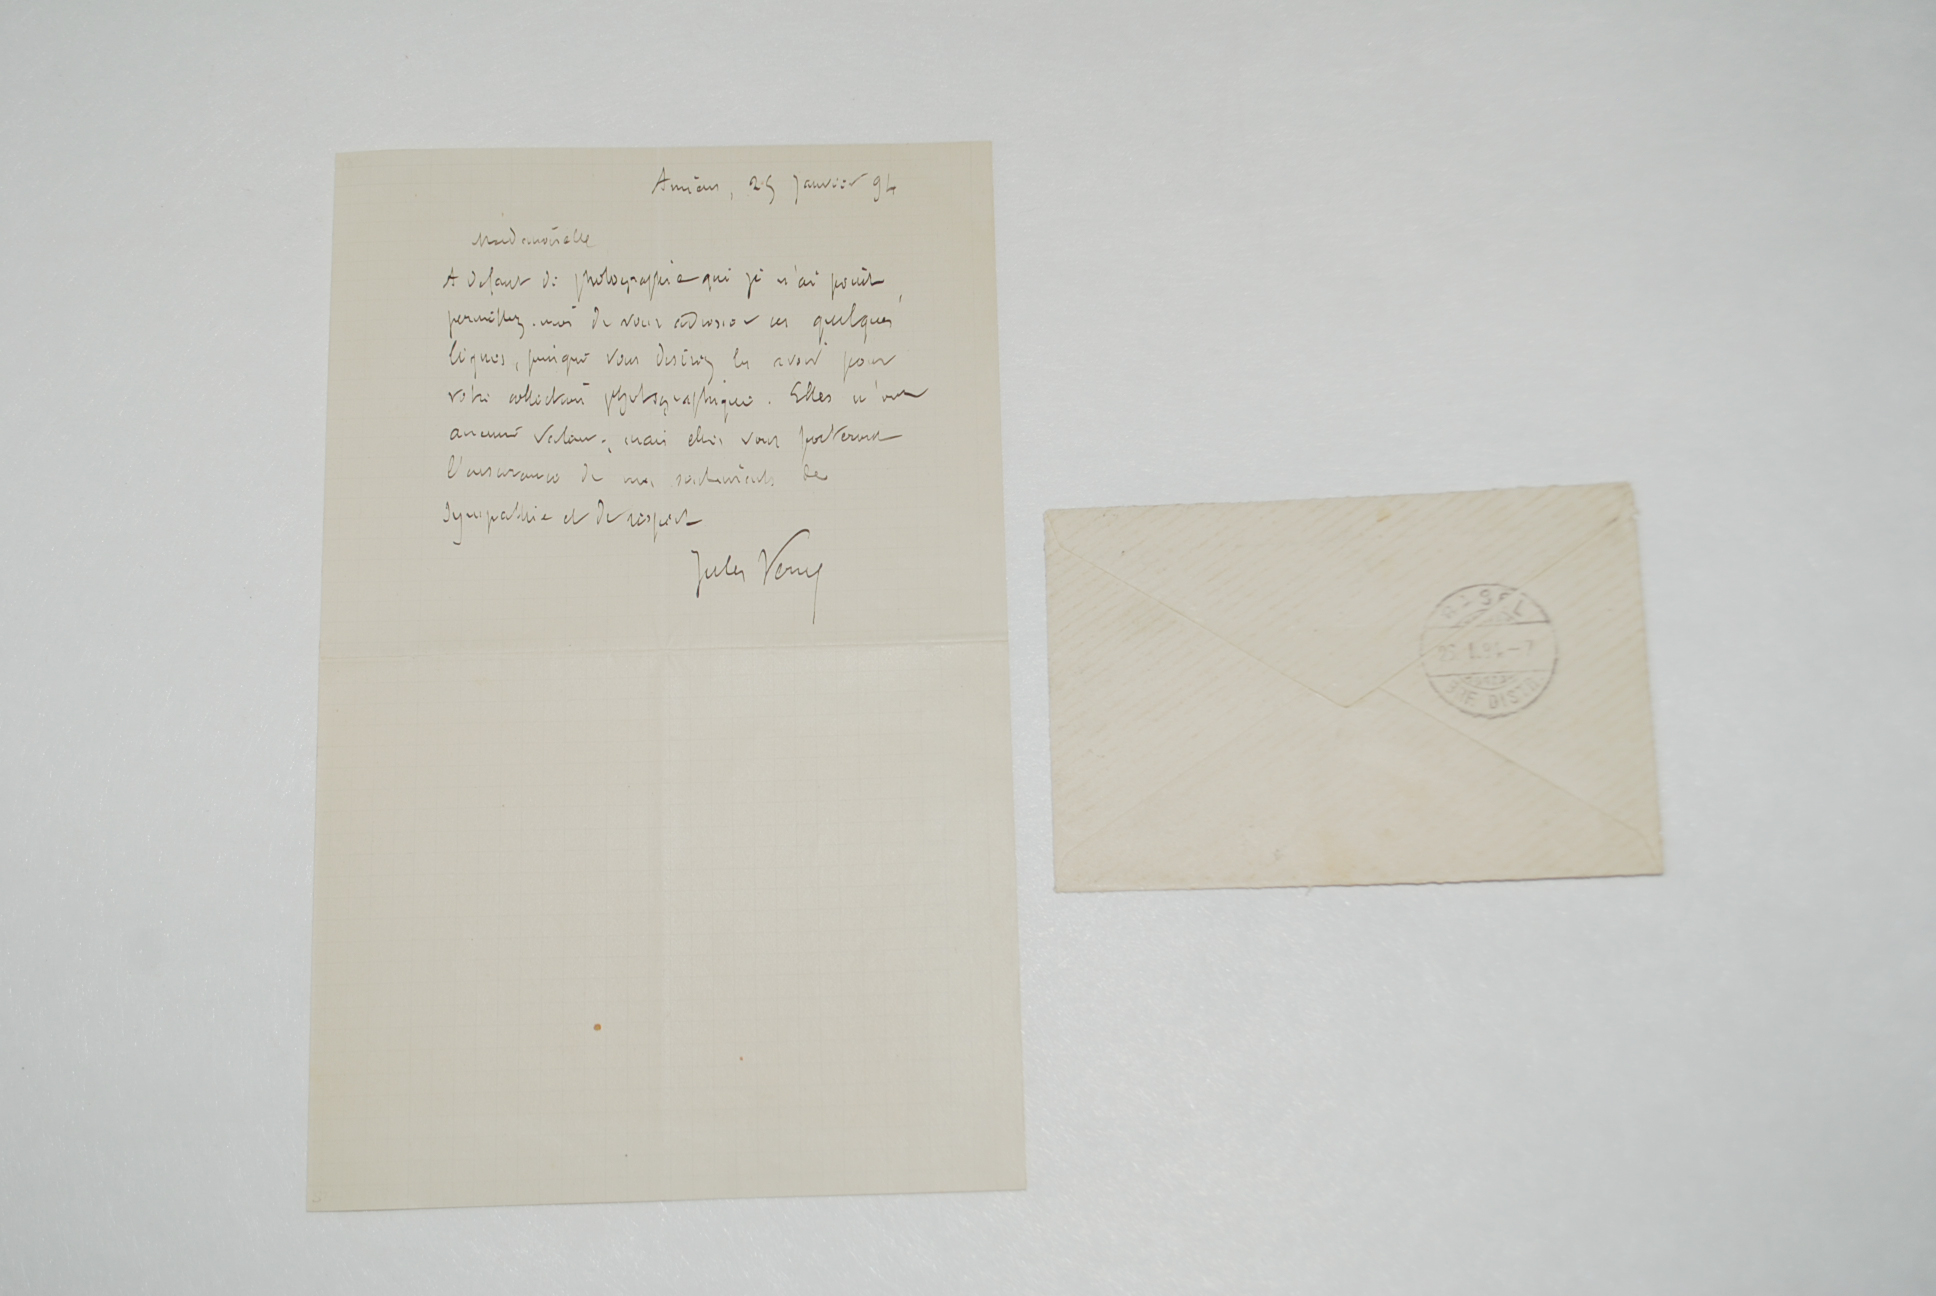 Amiens, 25 janvier 94
Mademoiselle
A defaut de photographie que je n'ai point,
permettez-moi de vous adresser ces quelques
lignes, puisque vous desirez les avoir pour
votre collection photographique. Elles n'ont
aucune valeur, mais elles vous porteront
l'assurance de mes sentiments de
sympathie et de respect
Jules Verne
BASEL
BRF. DISTR.